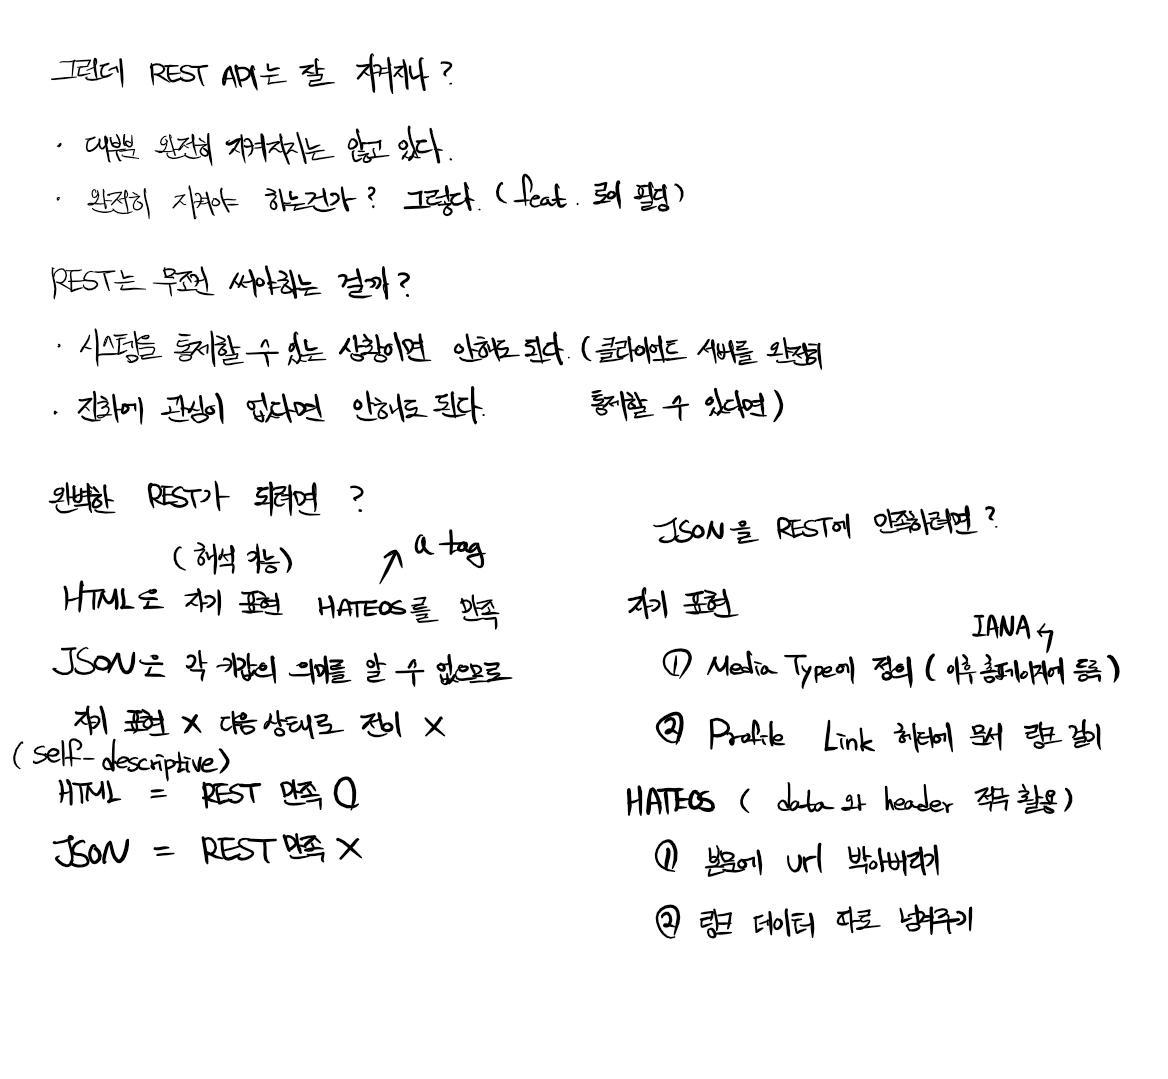 그런데 REST API는 잘 지켜지나?
· 대부분 완전히 지켜지지는 않고 있다.
· 완전히 지켜야 하는건가? 그렇다. (feat. 로이 필딩)
REST는 무조건 써야하는 걸까?
· 시스템을 통제할 수 있는 상황이면 안해도 된다. (클라이언트 서버를 완전히
통제할 수 있다면)
· 진화에 관심이 없다면 안해도 된다.
완벽한 REST가 되려면?
(해석 가능)
a tag
HTML은 자기 표현 HATEOS를 만족
JSON은 각 키값의 의미를 알 수 없으므로
자기 표현 X 다음 상태로 전이 X
(self-descriptive)
HTML = REST 만족 O
JSON = REST 만족 X
JSON을 REST에 만족하려면?
자기 표현
IANA
① Media Type에 정의 (이후 홈페이지에 등록)
② Profile Link 헤더에 문서 링크 걸기
HATEOS (data와 header 적극 활용)
① 본문에 url 박아버리기
② 링크 데이터 따로 넘겨주기